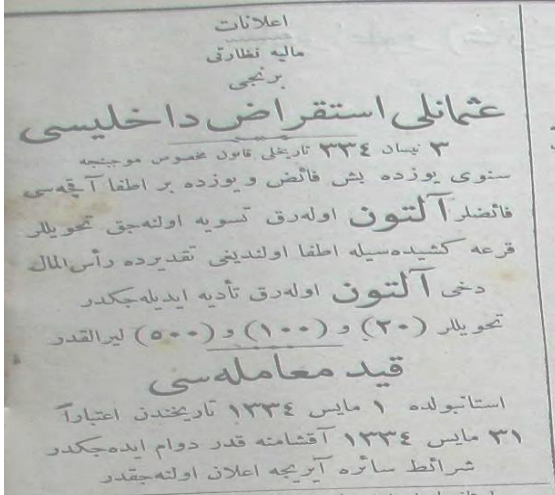 اعلانات
مالیه نظارتی
برنجی
عثمانلی استقراض داخلیسی
٣ نیسان ٣٣٤ تاریخلی قانون مخصوص موجبنجه
سنوی یوزده بش فائض و یوزده بر اطفا آقچه‌سی
فائضلر آلتون اوله‌رق تسویه اولنه‌جق تحویللر
قرعه کشیده‌سیله اطفا اولندیغی تقدیرده رأس‌المال
دخی آلتون اوله‌رق تأدیه ایدیله‌جکدر
تحویللر (٢٠) و (١٠٠) و (٥٠٠) لیرالقدر
قید معامله‌سی
استانبولده ١ مایس ١٣٣٤ تاریخندن اعتباراً
٣١ مایس ١٣٣٤ آقشامنه قدر دوام ایده‌جکدر
شرائط سائره آیریجه اعلان اولنه‌جقدر